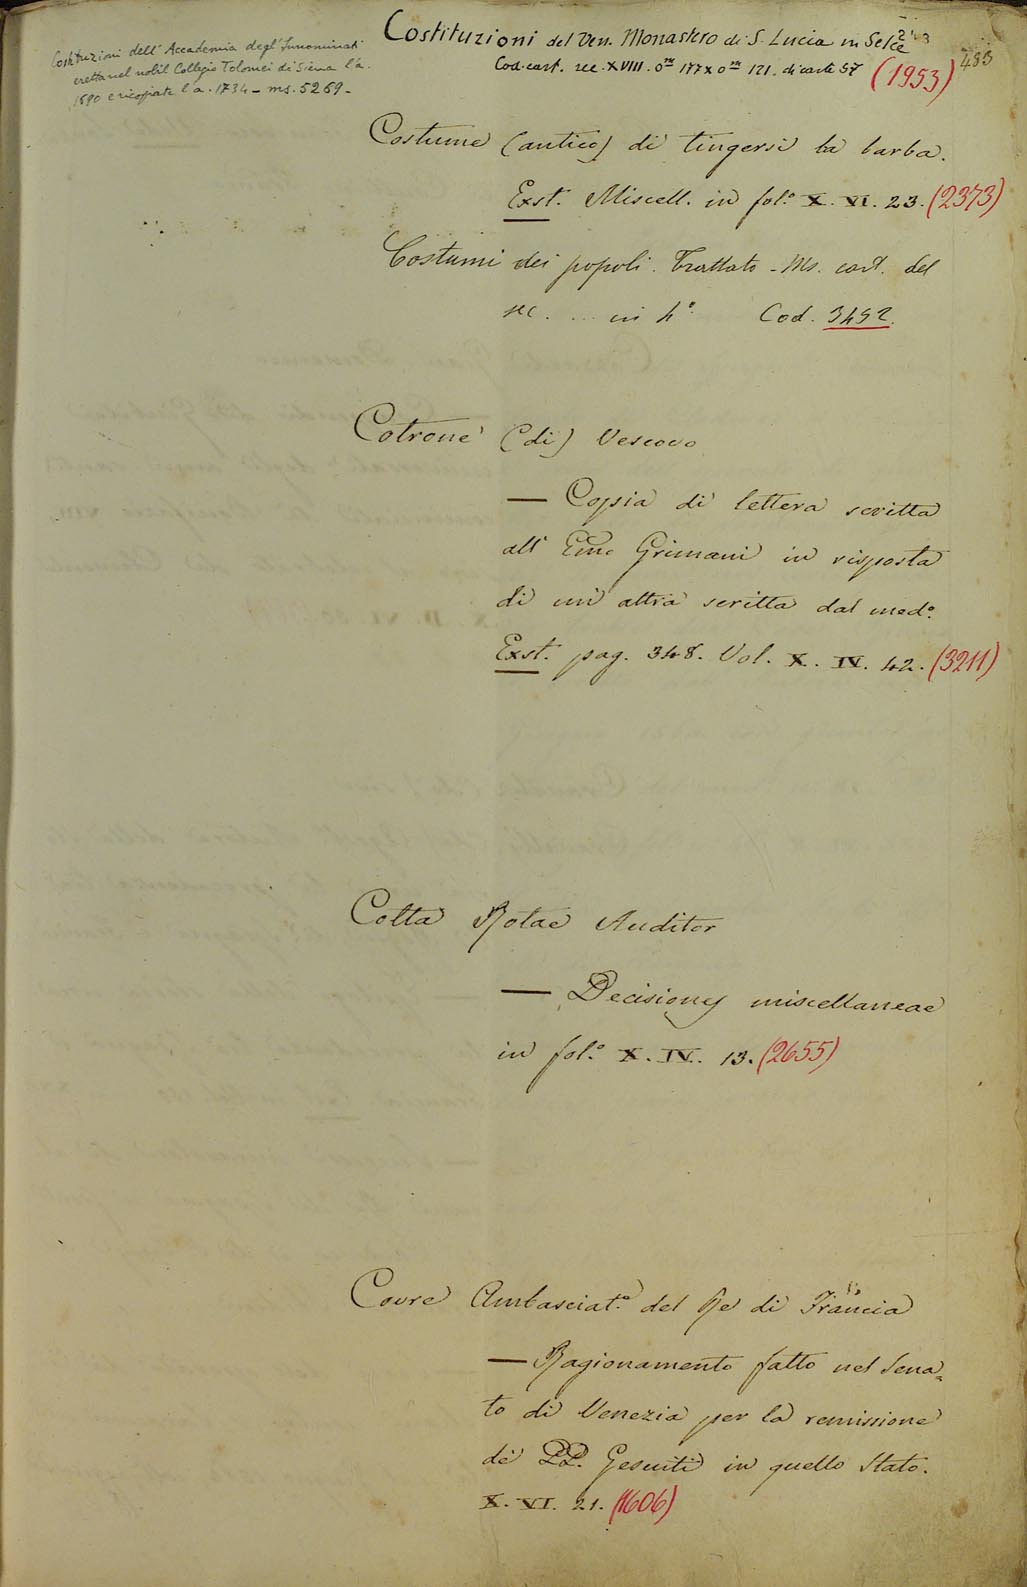 Costituzioni dell' Accademia degl' Innominati
eretta nel nobil Collegio Tolomei di Siena l'a.
1690 e ricopiate l'a. 1734 - ms. 5269 -
Costituzioni del Ven. Monastero di S. Lucia in Selce
483
Cod. cart. sec. XVIII. 0m 177 x 0m 121. di carte 57 (1953)
Costume (antico) di tingersi la barba.
Exst. Miscell. in fol.° X. VI. 23. (2373)
Costumi dei popoli. Trattato - Ms. cart. del
sec. ... in 4° Cod. 3452.
Cotrone (di) Vescovo
— Copia di lettera scritta
all' Emo Grimani in risposta
di un' altra scritta dal med.°
Exst. pag. 348. Vol. X. IV. 42. (3211)
Cotta Rotae Auditor
— Decisiones miscellaneae
in fol.° X. IV. 13. (2655)
Covre Ambasciat.e del Re di Francia
— Ragionamento fatto nel Sena=
to di Venezia per la remissione
de' PP. Gesuiti in quello Stato.
X. VI. 21. (1606)